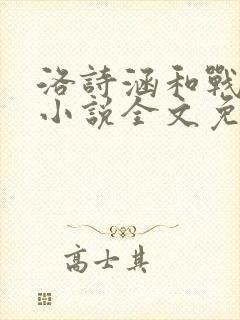 洛詩涵和戰
小說全文免
高士其